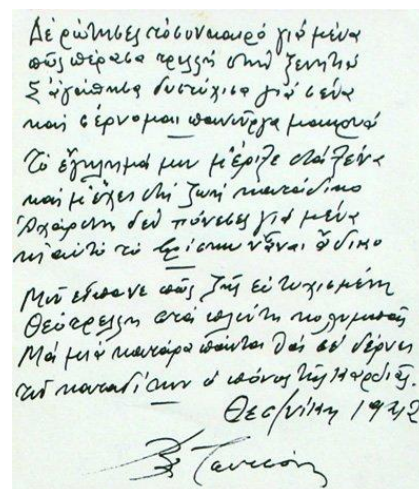 Δέ ρώτησες τόσον καιρό γιά μένα
πῶς πέρασα τρελλή στήν ξενητιά
Σ' ἀγάπησα δυστύχισα γιά σένα
καί σέρνομαι πανούργα μακρυά
Τό ἔγκλημά μου μ' ἔριξε στά ξένα
καί μ' ἔχει στή ζωή κατάδικο
Ἀχάριστη δέν πόνεσες γιά μένα
κι αὐτό τό βρίσκω νἆναι ἄδικο
Μοῦ εἴπανε πῶς ζῆς εὐτυχισμένη
Θεότρελλη στά πλούτη κολυμπᾶς
Μά μιά κατάρα πάντα θά σέ δέρνει
τοῦ καταδίκου ὁ πόνος τῆς καρδιᾶς
Θεσ/νίκη 1942